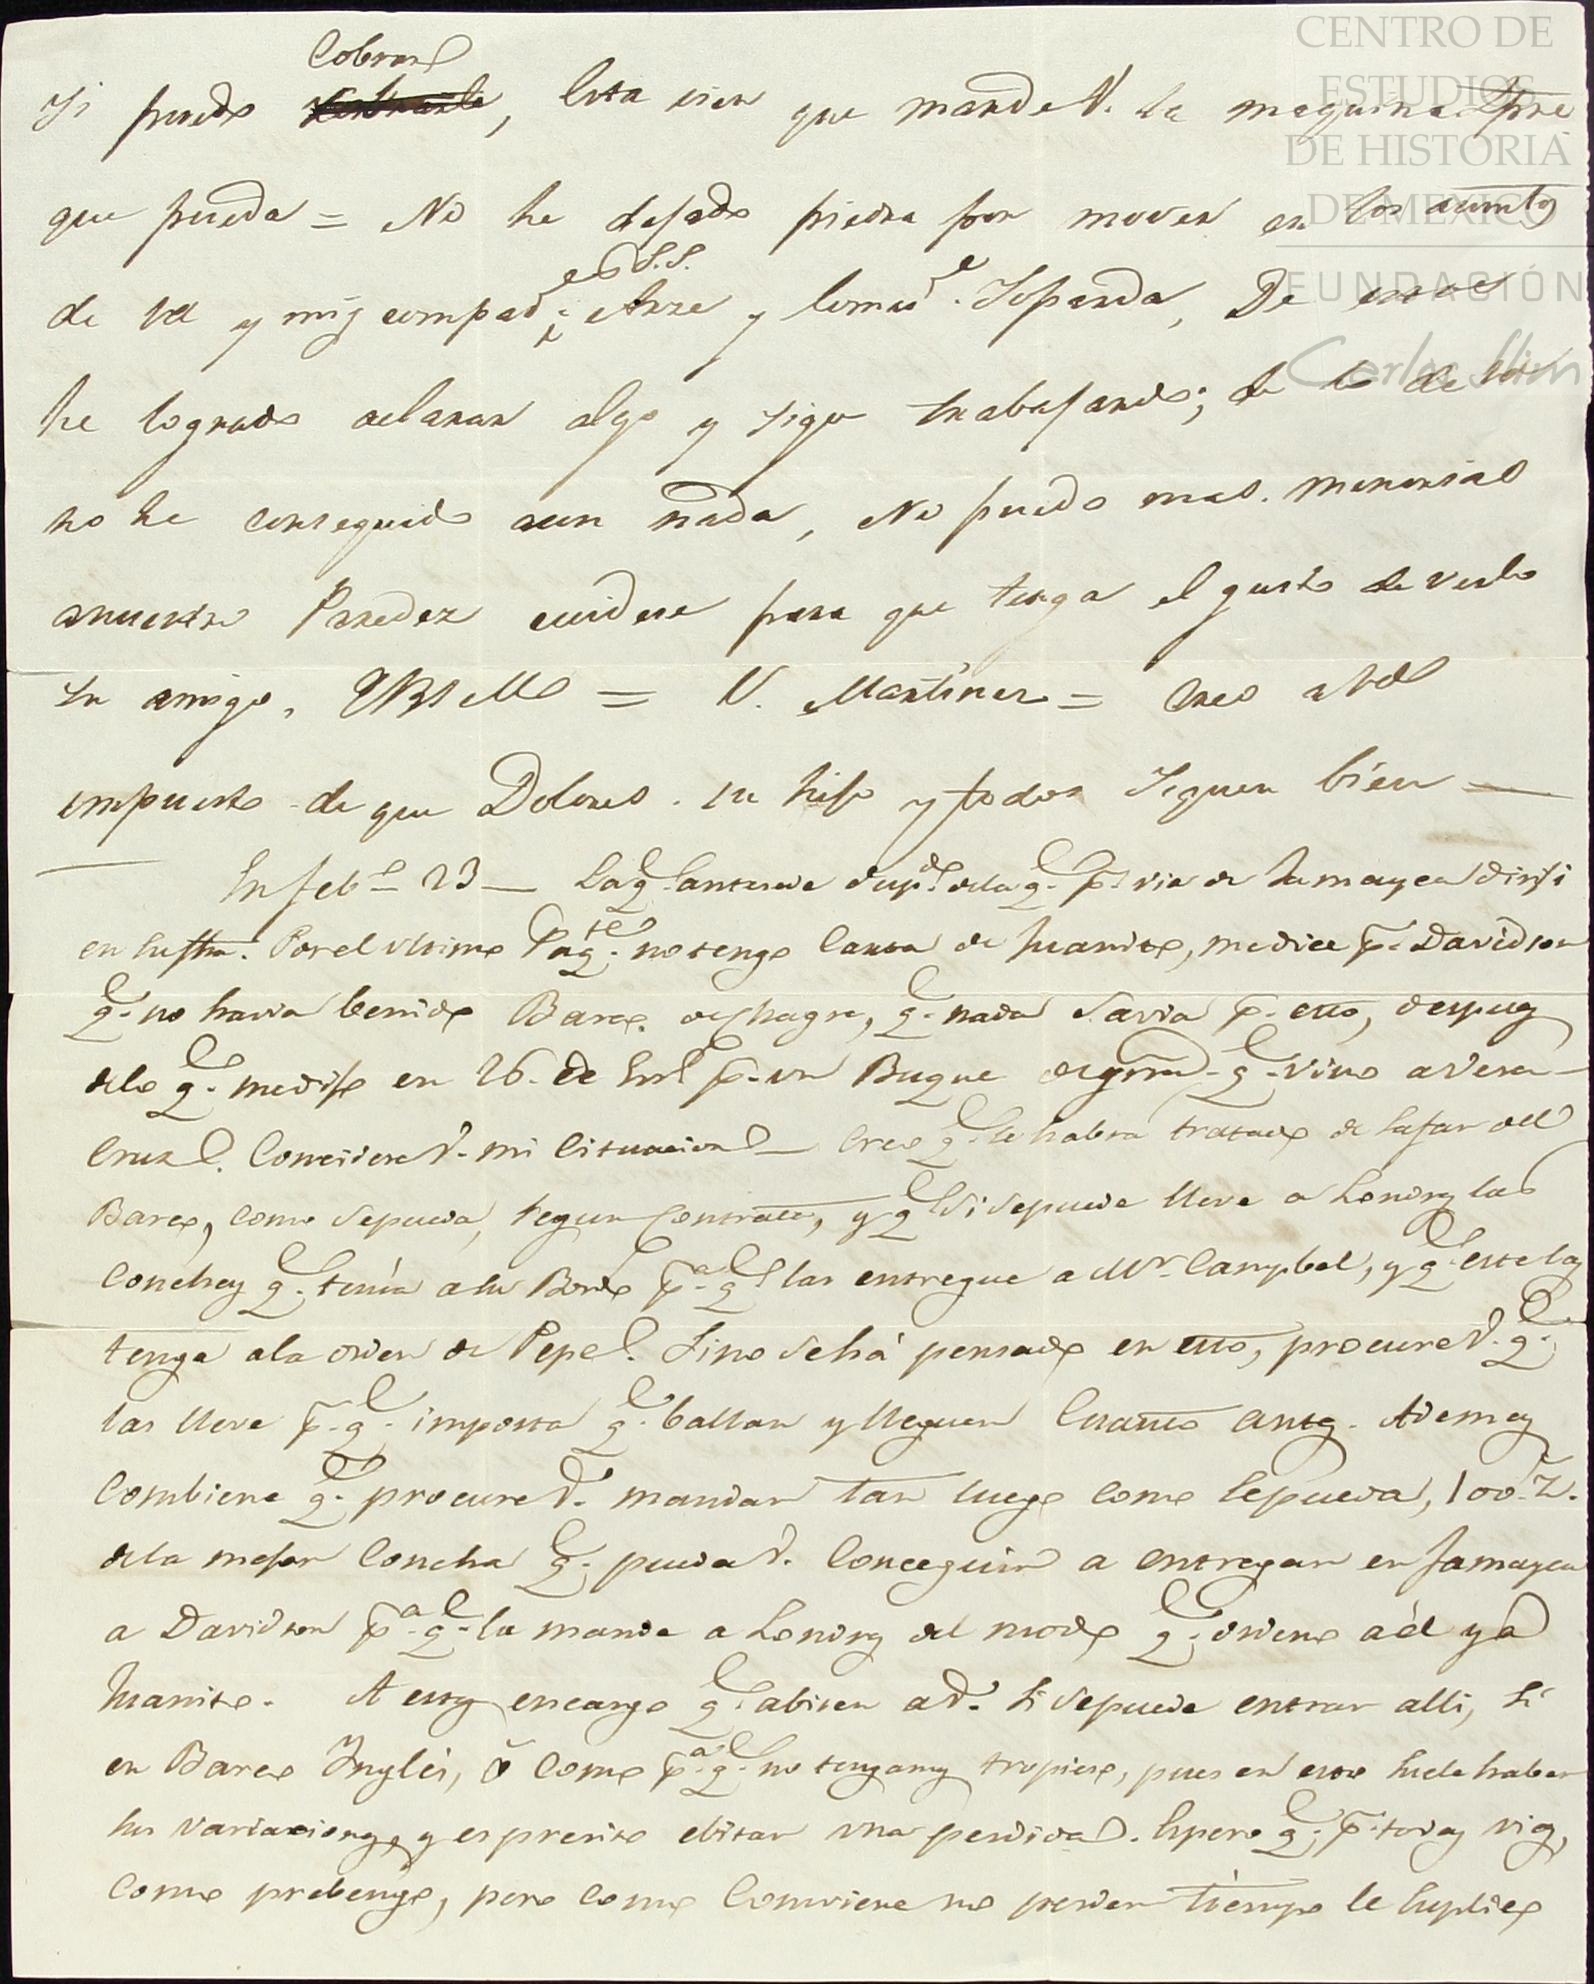 Cobrar
si puedo, Esta bien que mande V. la maquina siempre
que pueda = No he dejado piedra por mover en los asuntos
de Vd y mis compad.s los S.S. Arze y Tomas. Isparda, De
he logrado aclarar algo y sigo trabajando; de lo de
no he conseguido aun nada, No puedo mas. memorias
a nuestro Paredez cuidese para que tenga el gusto de verlo
su amigo, QBSM = V. Martinez = Creo a Vd
impuesto de que Dolores. su hijo y todos siguen bien —
En febo 23 — La q. antecede dup.do de la q. p.r via de Jamayca dirifi
en su fha. Por el ultimo Paq.te no tengo Carta de Juanito, me dice p. Davidson
q. no havia benido Barco de Chagre, q. nada Savia p. esto, despues
de lo q. me dijo en 26. de En.o p. un Buque de grra q. vino a Vera-
Cruz. Concidere V. mi Cituacion — Creo q. se habra tratado de Safar del
Barco, como Sepueda, segun Contrata, y q. Si Sepuede lleve a Londres las
Conchas q. tenia a su Bordo p.a q. las entregue a Mr. Campbel, y q. este las
tenga a la orden de Pepe. Sino Sehá pensado en esto, procure V. q.
las lleve p. q. importa q. baltan y lleguen Cuanto antes. Ademas
Combiene q. procure V. mandar tan luego como Sepueda, 100 z.
de la mejor Concha q. pueda V. Conceguir a entregar en Jamayca
a Davidson p.a q. la mande a Londres del modo q. ordeno a él y á
Juanito. A estos encargo q. abisen a V. si Sepuede entrar alli, si
en Barco Inglés, ó Como p.a q. no tengamos tropieso, pues en esto Suele haber
sus variaciones, y es presiso ebitar una perdida. Espero q. p. todas vias,
como prebengo, pero como Conviene no perder tiempo le suplico